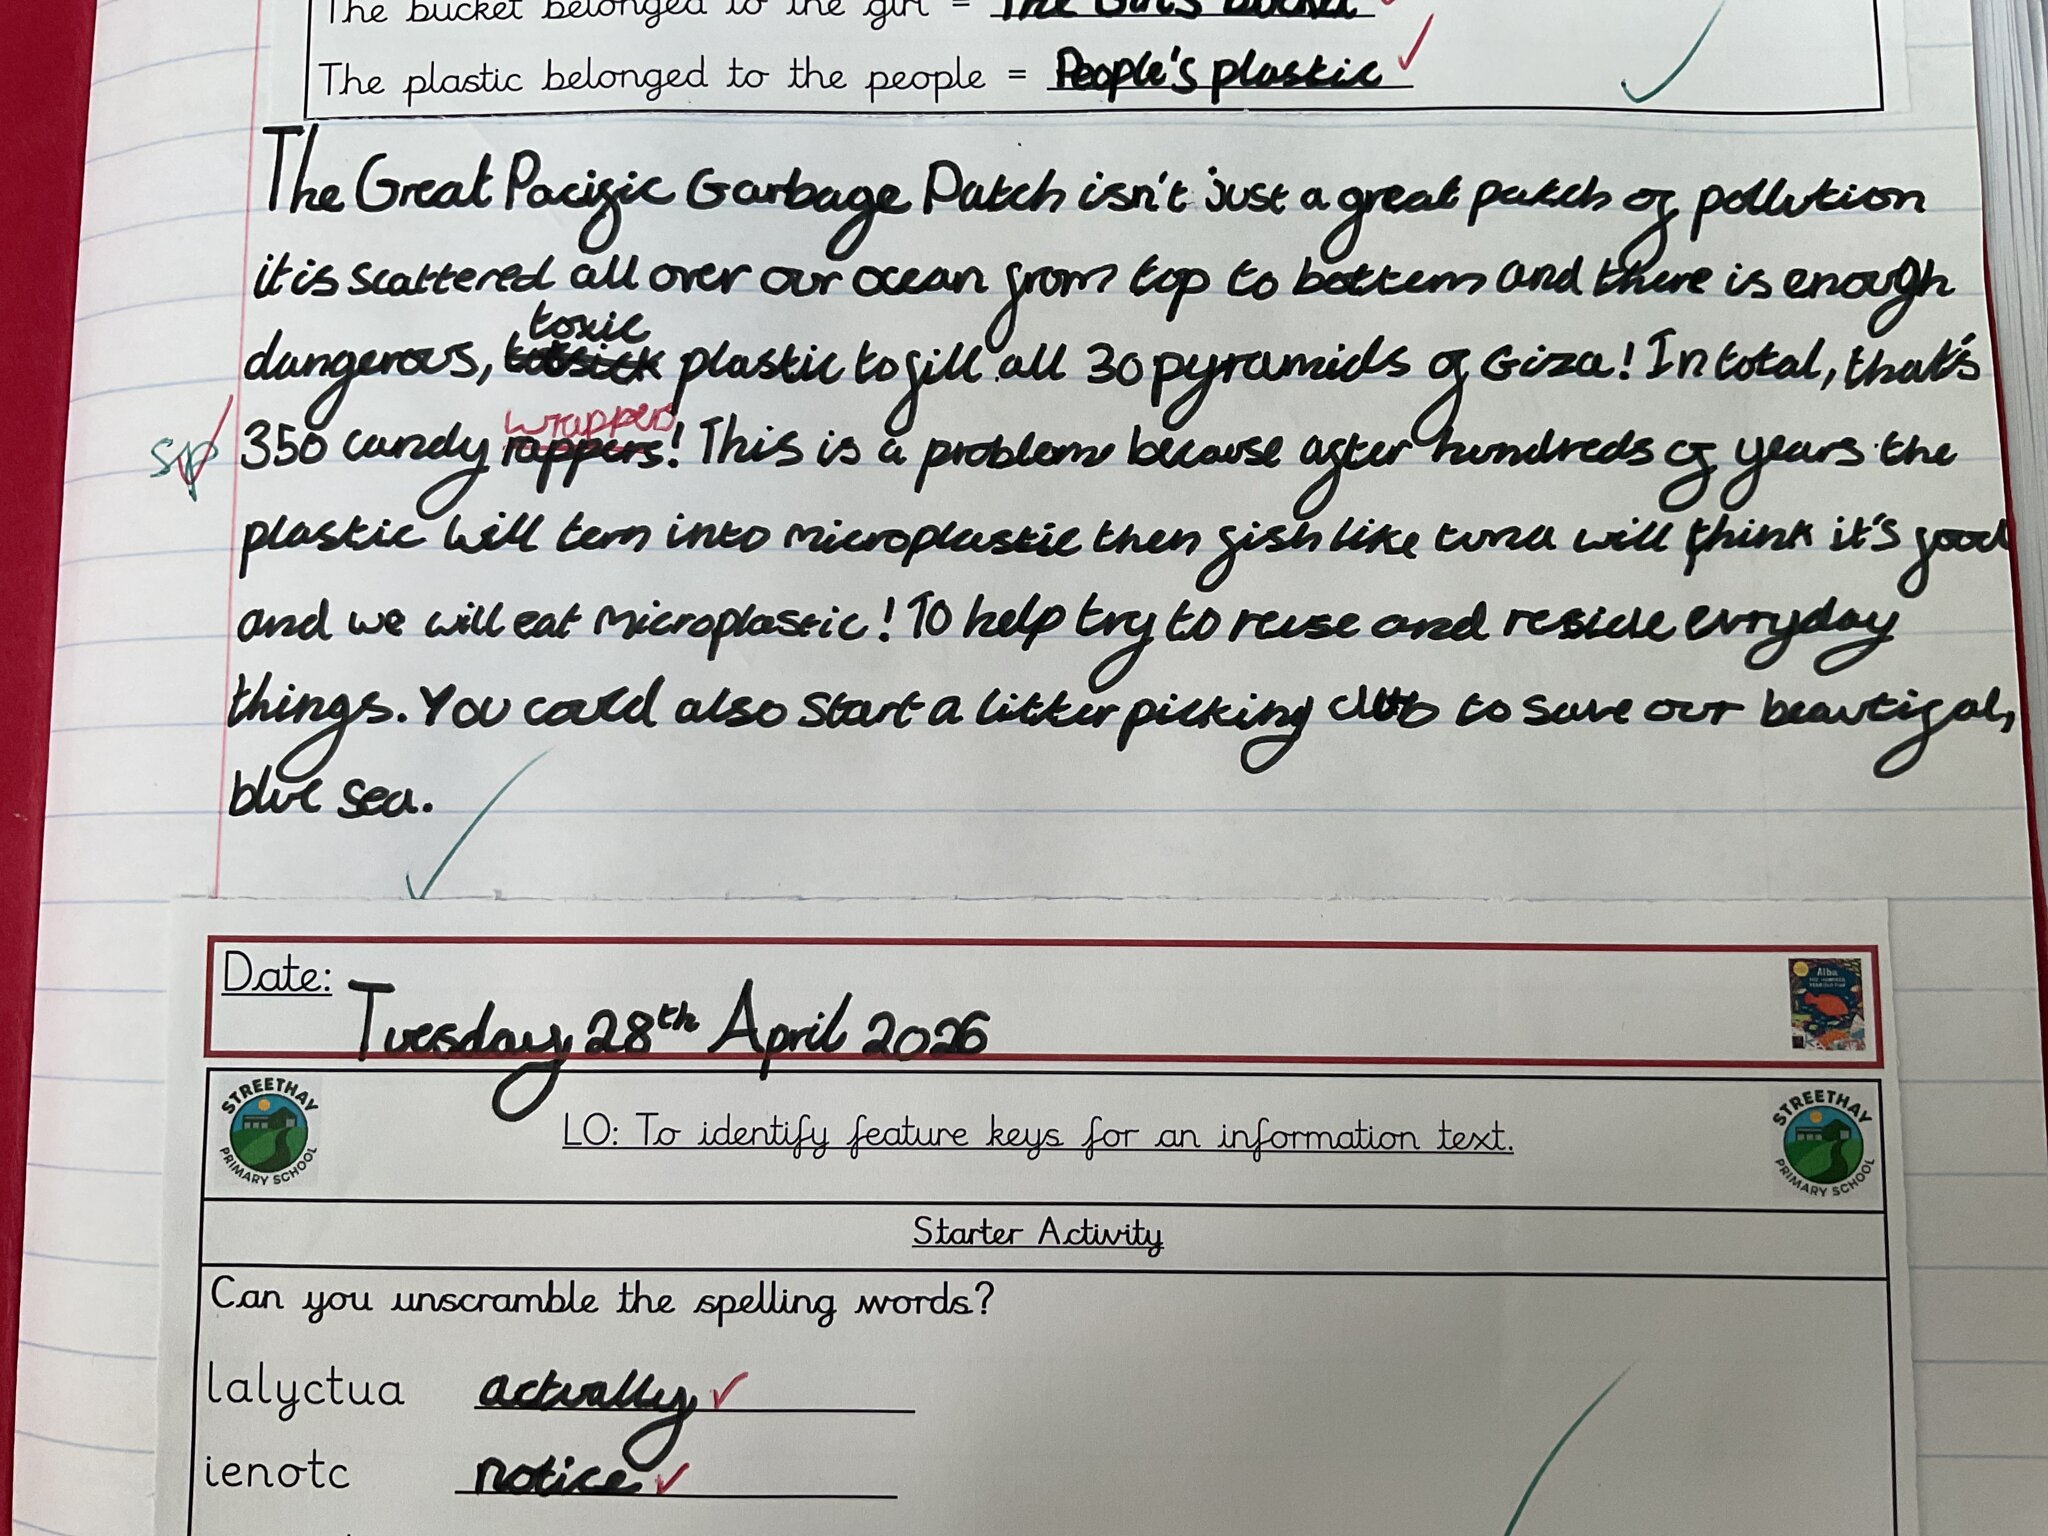 The bucket belonged to the girl = The Girl's bucket
The plastic belonged to the people = People's plastic
The Great Pacific Garbage Patch isn't just a great patch of pollution
it is scattered all over our ocean from top to bottem and there is enough
toxic
dangerous, totsick plastic to fill all 30 pyramids of Giza! In total, that's
wrappers
sp 350 candy rappers! This is a problem because after hundreds of years the
plastic will tern into microplastic then fish like tuna will think it's food
and we will eat microplastic! To help try to reuse and resicle evryday
things. You could also start a litter picking club to save our beautifal,
blue sea.
Date: Tuesday 28th April 2026
Alba
STREETHAY PRIMARY SCHOOL
LO: To identify feature keys for an information text.
STREETHAY PRIMARY SCHOOL
Starter Activity
Can you unscramble the spelling words?
lalyctua actually
ienotc notice